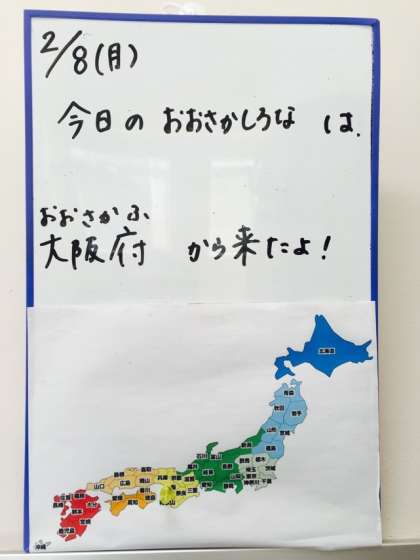 2/8(月)
今日の おおさかしろな は、
おおさかふ
大阪府 から来たよ!
北海道
青森
秋田 岩手
山形 宮城
福島
新潟
石川 富山
福井 長野 群馬 栃木
岐阜 山梨 埼玉 茨城
愛知 静岡 東京
神奈川 千葉
島根 鳥取
山口 広島 岡山
兵庫 京都 滋賀
愛媛 香川
高知 徳島
奈良 三重
佐賀 福岡
長崎 大分
熊本
宮崎
鹿児島
沖縄